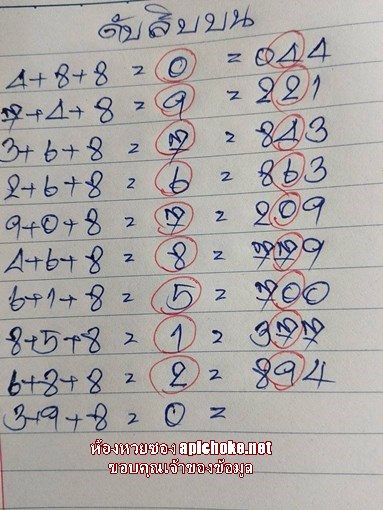 ดับสิบบน
4+8+8 = 0 = 044
7+4+8 = 9 = 221
3+6+8 = 7 = 843
2+6+8 = 6 = 863
9+0+8 = 7 = 209
4+6+8 = 8 = 779
6+1+8 = 5 = 700
8+5+8 = 1 = 377
6+8+8 = 2 = 894
3+9+8 = 0 =
ห้องหวยซอง apichoke.net
ขอบคุณเจ้าของข้อมูล